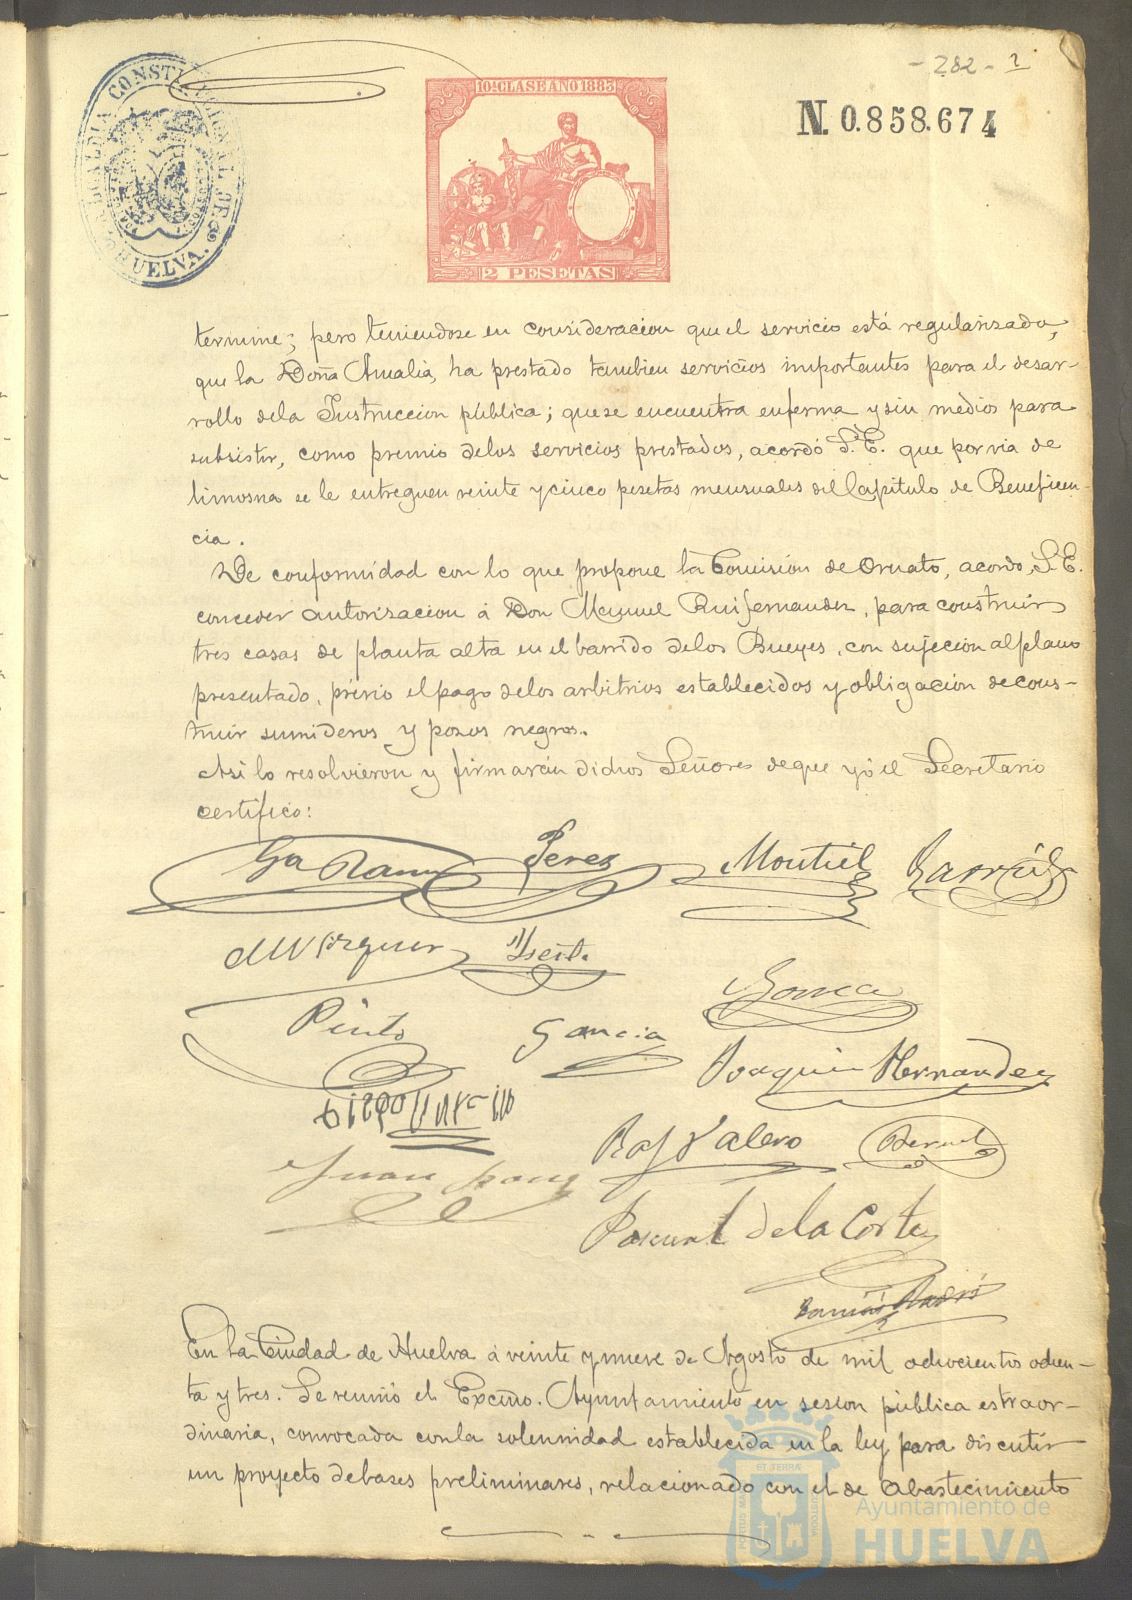 - 282 - 2
ALCALDIA CONSTITUCIONAL DE HUELVA.
10ª CLASE AÑO 1883
N. 0.858.674
2 PESETAS
termine; pero teniendose en consideracion que el servicio está regularizado,
que la Doña Amalia, ha prestado tambien servicios importantes para el desar-
rollo dela Instruccion pública; que se encuentra enferma y sin medios para
subsistir, como premio delos servicios prestados, acordó S.E. que por via de
limosna se le entreguen veinte y cinco pesetas mensuales del Capitulo de Beneficen-
cia.
De conformidad con lo que propone la Comision de Ornato, acordo, S.E.
conceder autorizacion á Don Manuel Ruifernandez, para construir
tres casas de planta alta en el barrido delos Bueyes, con sujecion al plano
presentado, prévio el pago delos arbitrios establecidos y obligacion de cons-
truir sumideros y pozos negros.
Asi lo resolvieron y firmarán dichos Señores de que yó el Secretario
certifico:
Perez Montiel
Pinto Garcia
Joaquin Hernandez
Raf Valero Bernal
Juan
Pascual de la Corte
En la Ciudad de Huelva á veinte y nueve de Agosto de mil ochocientos ochen-
ta y tres. Se reunió el Excmo. Ayuntamiento en sesion pública estraor-
dinaria, convocada con la solemnidad establecida en la ley para discutir
un proyecto de bases preliminares, relacionado con el de Abastecimiento
Ayuntamiento de
HUELVA